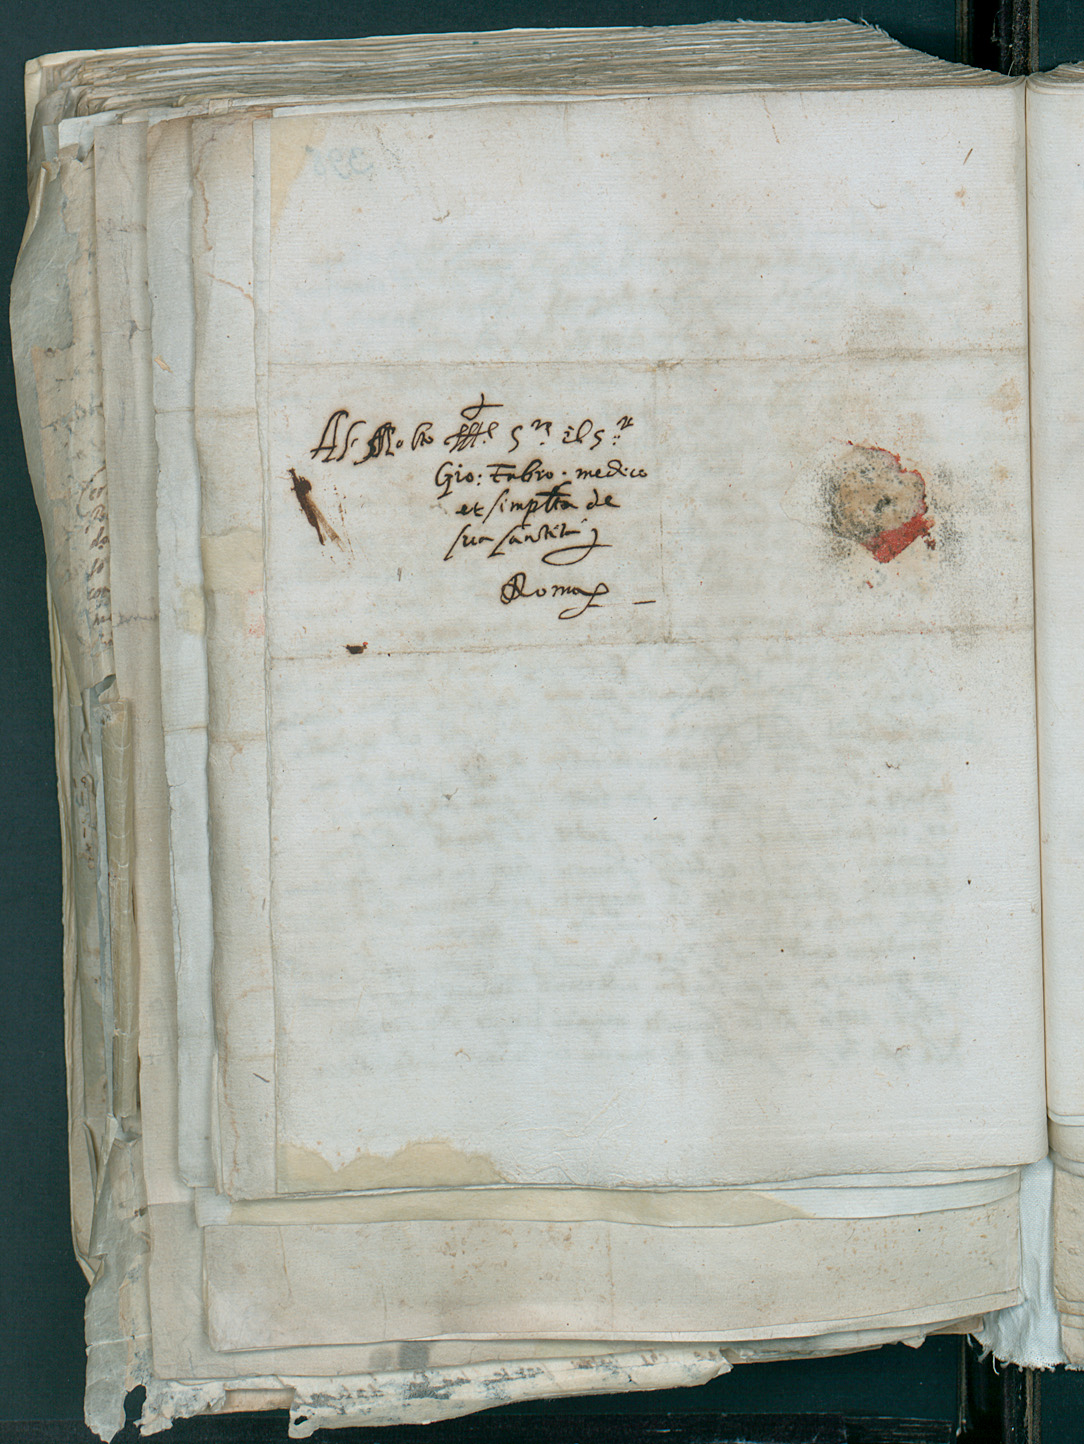 Al Molto Ill.e S.re il S.r
Gio: Fabro. medico
et simplista de
sua santità
Roma